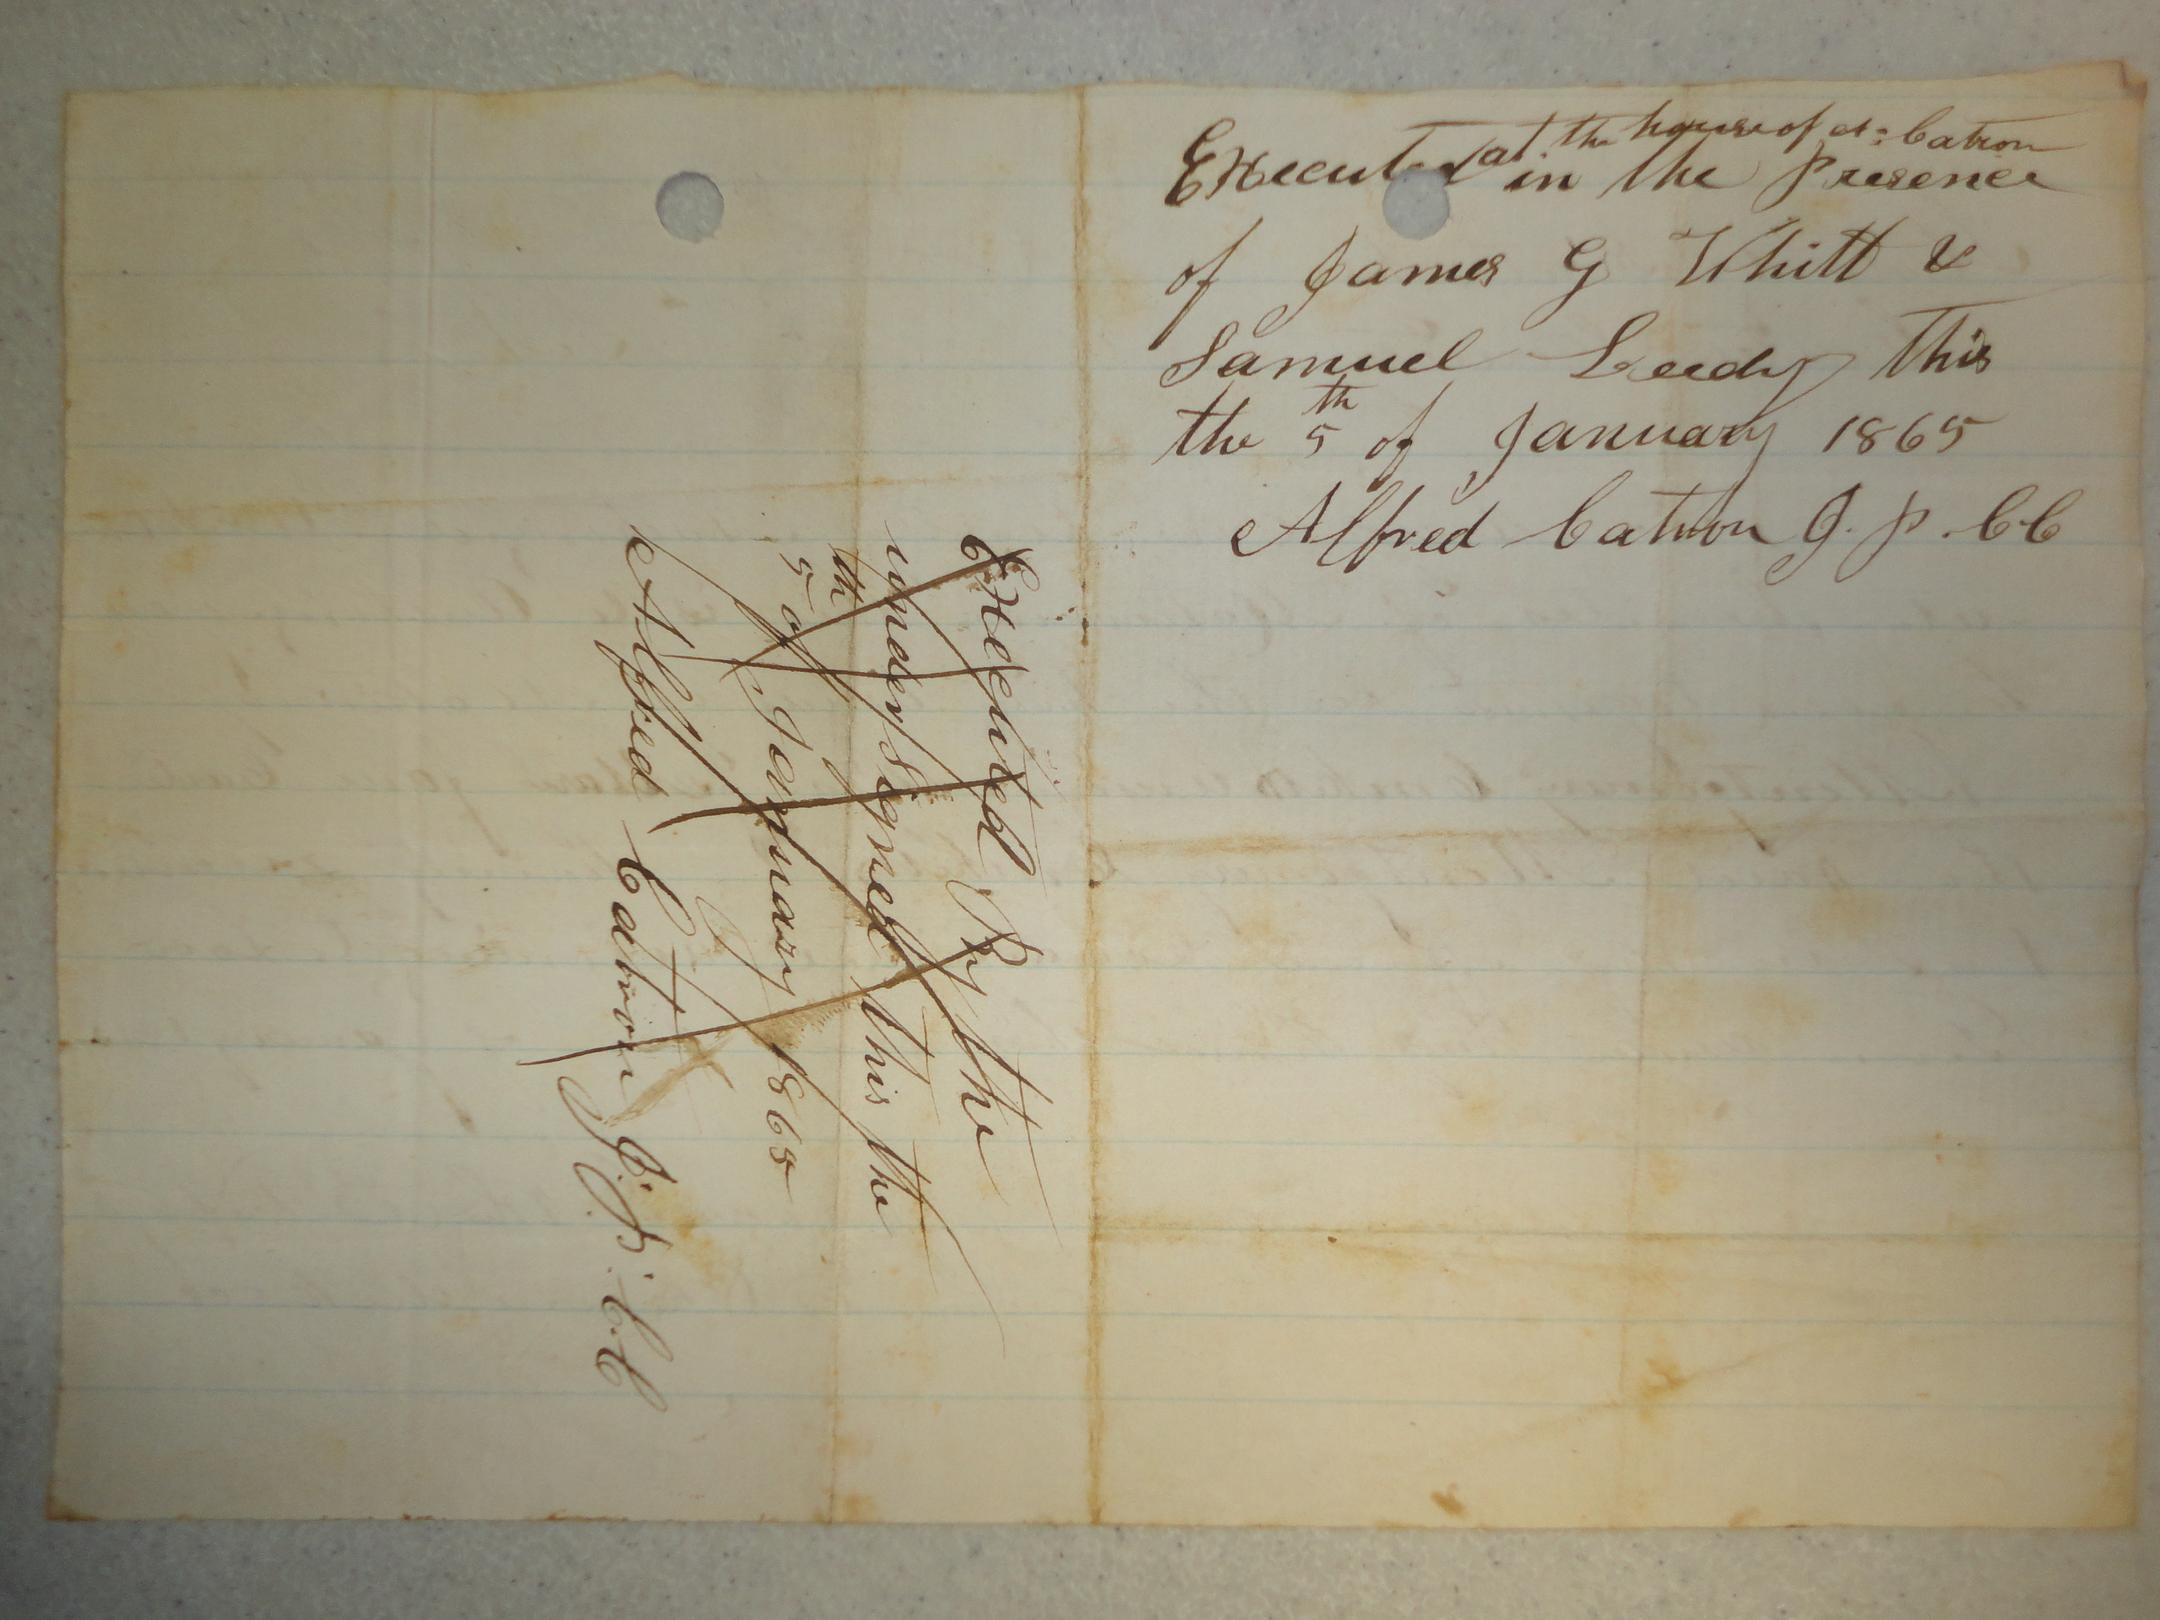 Executed at the house of A: Catron
in the Presence
of James G Whitt &
Samuel Leedy This
the 5th of January 1865
Alfred Catron J. P. C C
Executed By the
undersigned This the
5th of January 1865
Alfred Catron J. P. C C